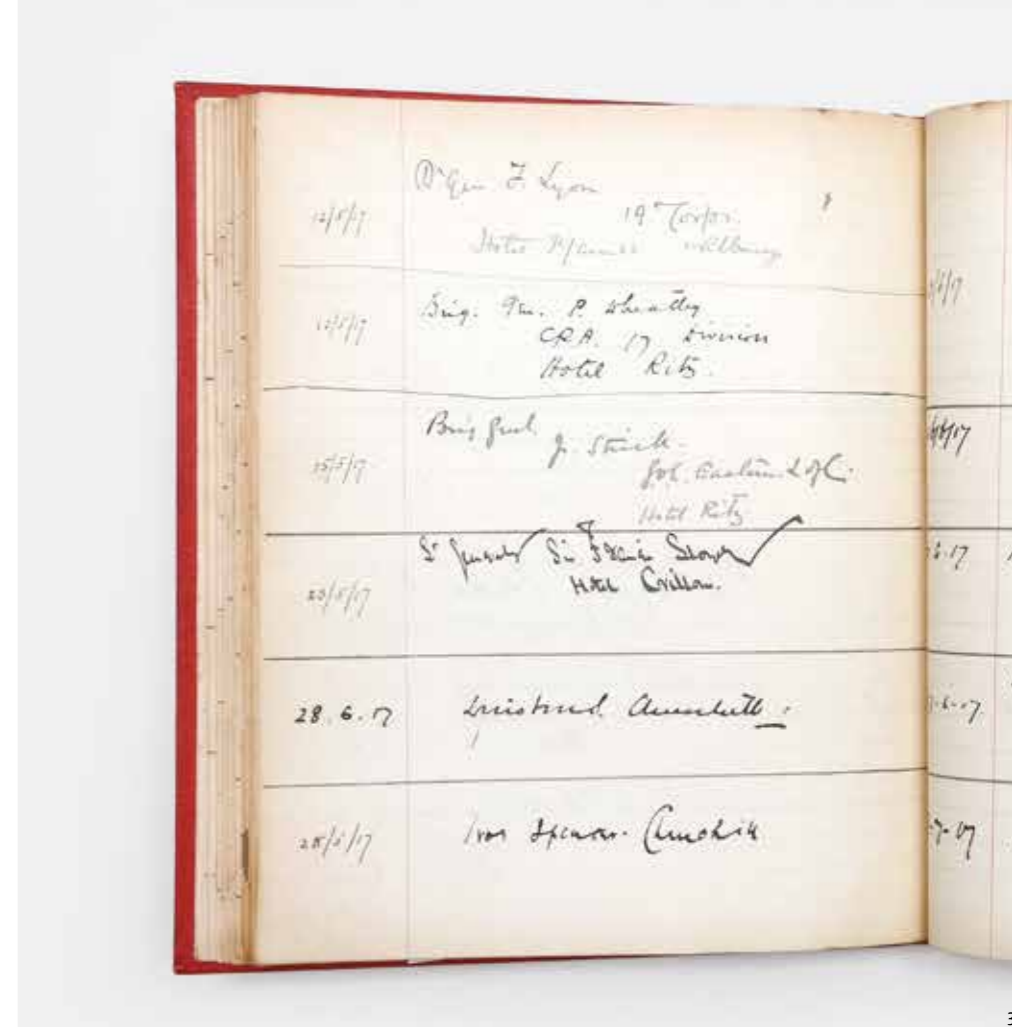 12/5/17
Br Gen F. Lyon
19th Corps.
Hotel
12/5/17
Brig. Gen. P. Wheatley
CRA. 17 Division
Hotel Ritz.
15/5/17
Brig Genl J. Strick.
Eastern L of C.
Hotel Ritz
23/5/17
Lt General Sir Francis
Hotel Crillon.
28.6.17
Winston S. Churchill
28/6/17
Ivor Spencer-Churchill
/6/17
/6/17
6.17
6.17.
7-17